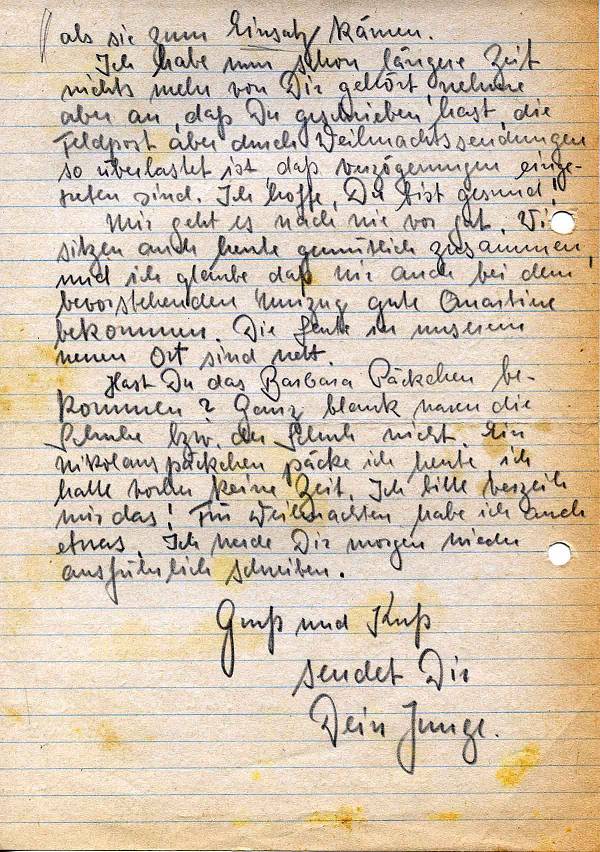 als sie zum Einsatz kämen.
Ich habe nun schon längere Zeit
nichts mehr von Dir gehört, nehme
aber an, daß Du geschrieben hast, die
Feldpost aber durch Weihnachtssendungen
so überlastet ist, daß Verzögerungen einge-
treten sind. Ich hoffe, Du bist gesund!
Mir geht es nach wie vor gut. Wir
sitzen auch heute gemütlich zusammen,
und ich glaube daß wir auch bei dem
bevorstehenden Umzug gute Quartiere
bekommen. Die Leute in unserem
neuen Ort sind nett.
Hast Du das Barbara Päckchen be-
kommen? Ganz blank waren die
Schuhe bzw. der Schuh nicht. Ein
Nikolauspäckchen packe ich heute, ich
hatte vorher keine Zeit. Ich bitte verzeih
mir das! Für Weihnachten habe ich auch
etwas. Ich werde Dir morgen wieder
ausführlich schreiben.
Gruß und Kuß
sendet Dir
Dein Junge.